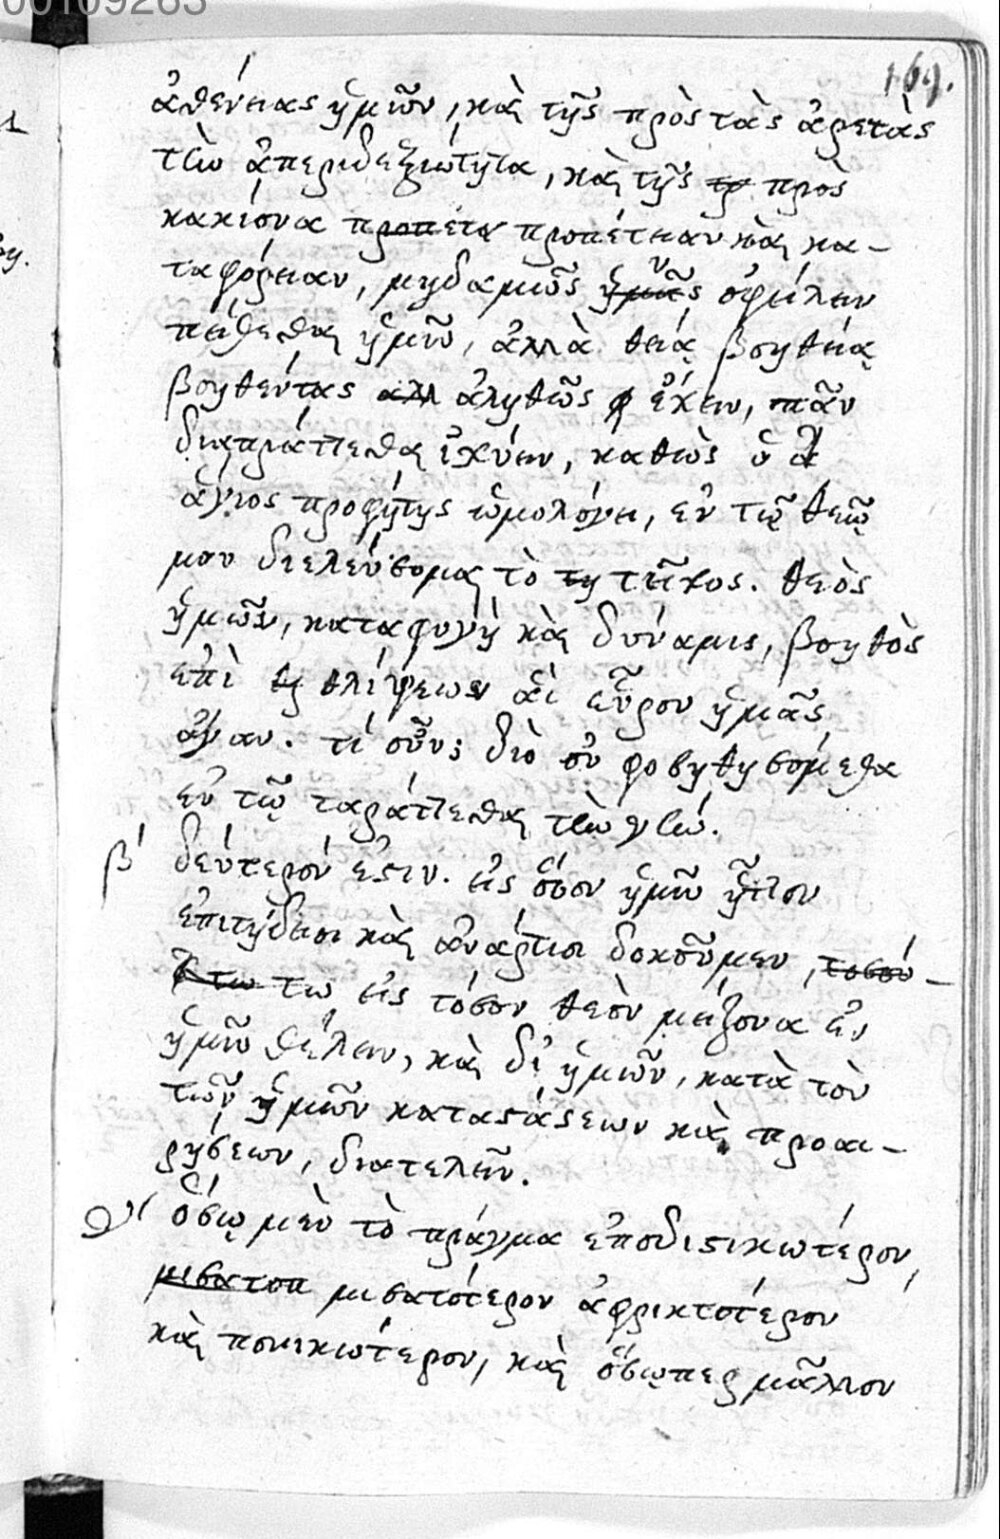 00109263
169.
ἀσθενείας ἡμῶν, καὶ τῆς πρὸς τὰς ἀρετὰς
τὴν ἀπεριδεξιώτητα, καὶ τῆς πρὸς
κακίονα προπετει προπέτειαν καὶ κα-
ταφόρειαν, μηδαμῶς ἡμᾶς ὀφείλειν
πείθεσθαι ἡμῖν, ἀλλὰ θείᾳ βοηθείᾳ
βοηθέντας αλλ ἀληθῶς ἔχειν, πᾶν
διαπράττεσθαι ἰχύειν, καθὼς ὁ
ἅγιος προφήτης ὡμολόγει, ἐν τῷ θεῷ
μου διελεύσομαι τὸ τη τεῖχος. θεὸς
ἡμῶν, καταφυγὴ καὶ δύναμις, βοηθὸς
ἐπὶ θλίψεων αἱ εὗρον ἡμᾶς
ἄγαν. τί οὖν; διὸ οὐ φοβηθησόμεθα
ἐν τῷ ταράττεσθαι τὴν γῆν.
β΄ δεύτερόν ἐστιν. εἰς ὅσον ἡμῖν ἧττον
ἐπιτήδειοι καὶ ἀνάρτιοι δοκοῦμεν, τοσού-
τω εἰς τόσον θεὸν μείζονα ἐν
ἡμῖν θέλειν, καὶ δι' ἡμῶν, κατὰ τὸν
τῶν ἡμῶν καταστάσεων καὶ προαι-
ρήσεων, διατελεῖν.
ὅσῳ μὲν τὸ πράγμα ἐποδιστικώτερον,
μισατοπ μισατότερον ἀφρικτότερον
καὶ ποινικώτερον, καὶ ὅσῳπερ μᾶλλον